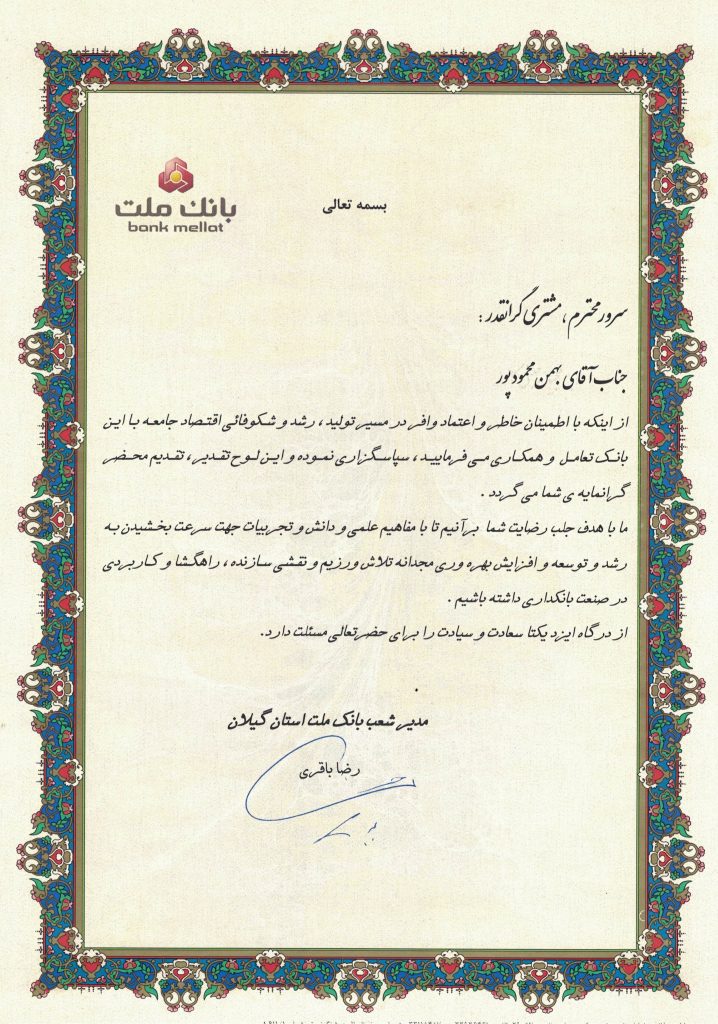 بانک ملت
bank mellat
بسمه تعالی
سرور محترم ، مشتری گرانقدر :
جناب آقای بهمن محمودپور
از اینکه با اطمینان خاطر و اعتماد وافر در مسیر تولید ، رشد و شکوفائی اقتصاد جامعه با این
بانک تعامل و همکاری می فرمایید ، سپاسگزاری نموده و این لوح تقدیر ، تقدیم محضر
گرانمایه ی شما می گردد .
ما با هدف جلب رضایت شما برآنیم تا با مفاهیم علمی و دانش و تجربیات جهت سرعت بخشیدن به
رشد و توسعه و افزایش بهره وری مجدانه تلاش ورزیم و نقشی سازنده ، راهگشا و کاربردی
در صنعت بانکداری داشته باشیم .
از درگاه ایزد یکتا سعادت و سیادت را برای حضرتعالی مسئلت دارد.
مدیر شعب بانک ملت استان گیلان
رضا باقری